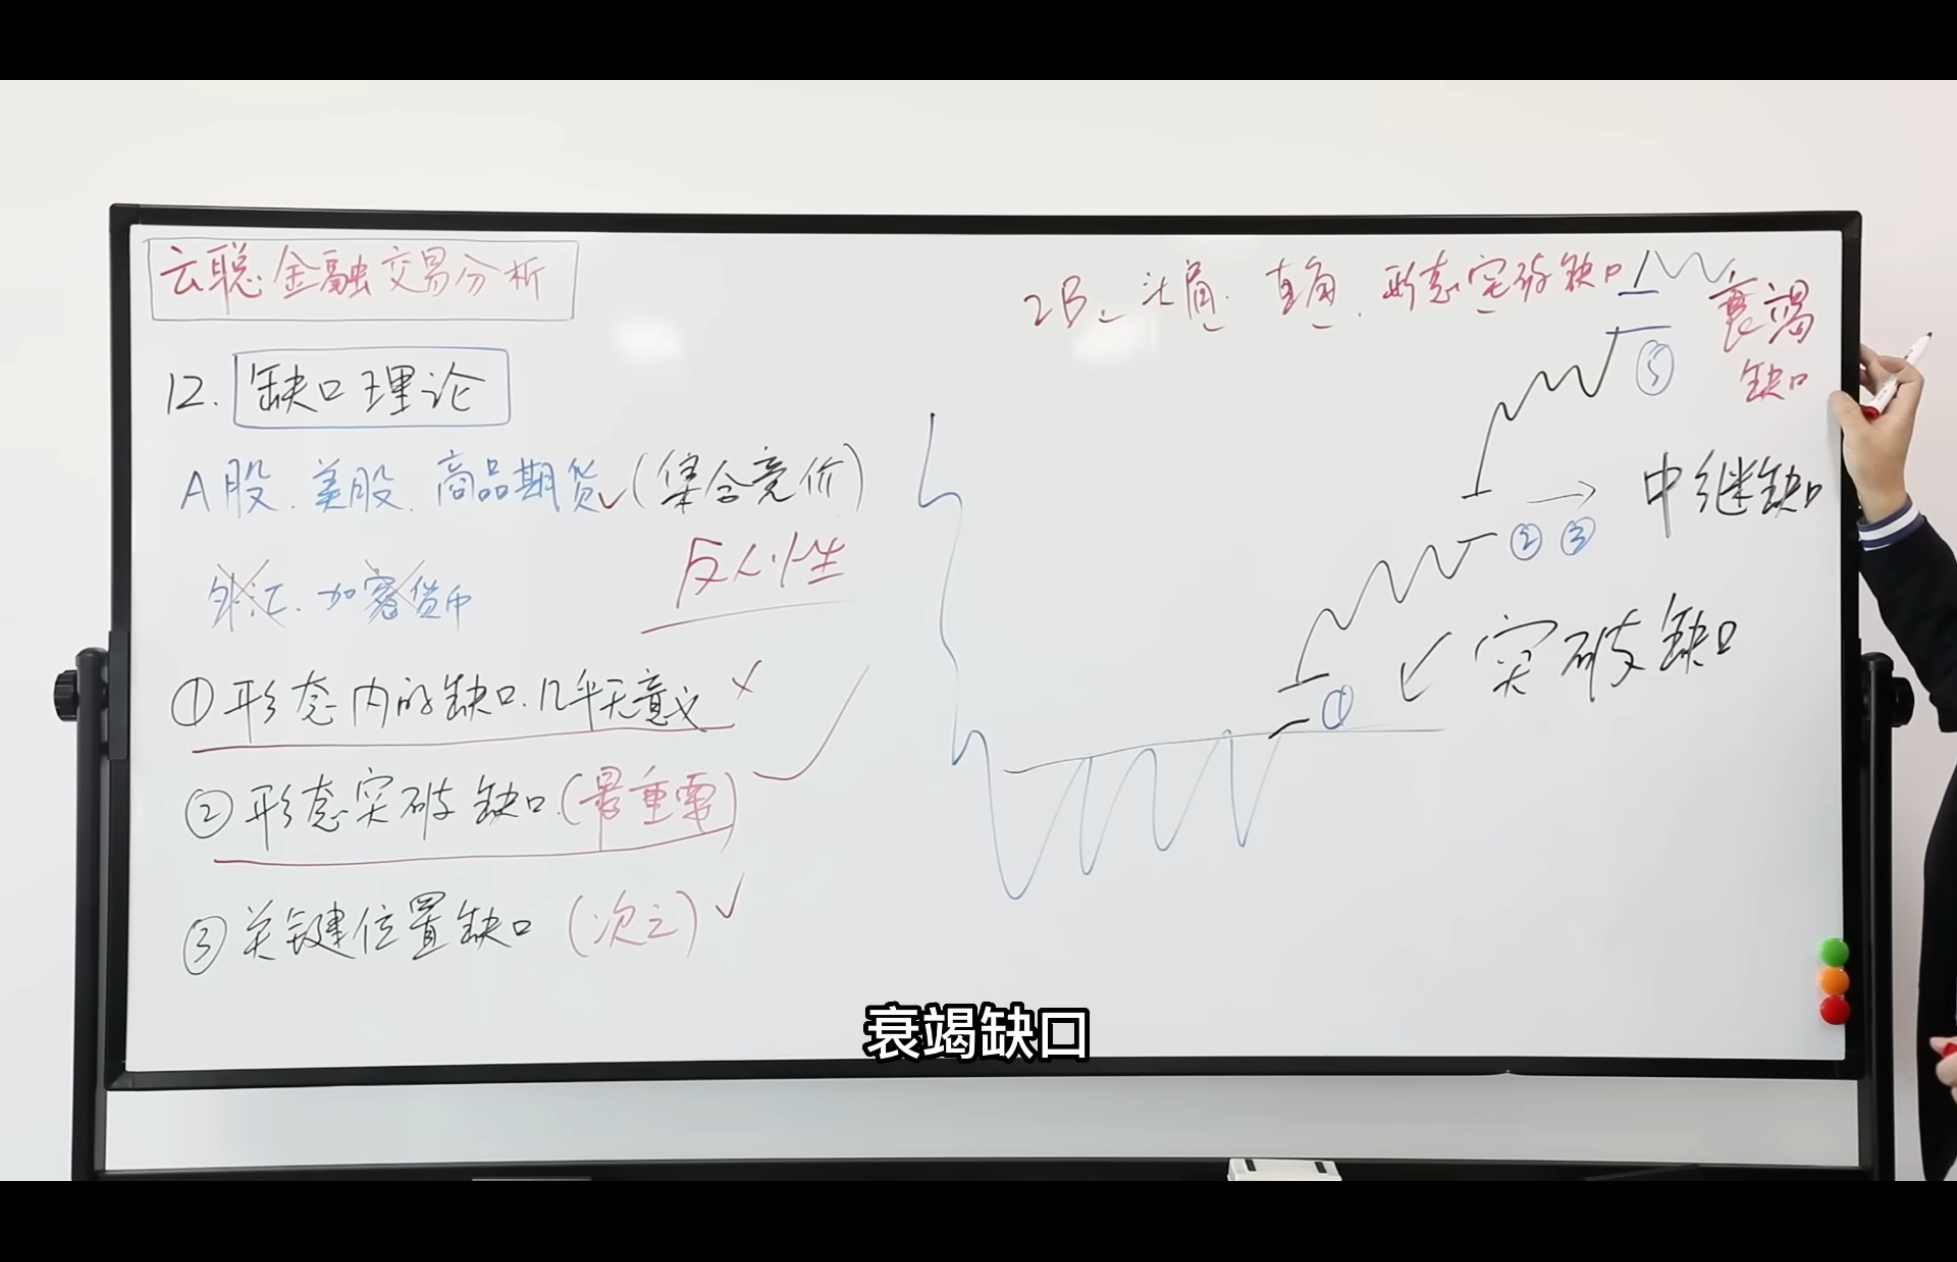 云聪金融交易分析
12. 缺口理论
A股.美股.商品期货(集合竞价)
反人性
外汇.加密货币
①形态内的缺口.几乎无意义
②形态突破缺口.(最重要)
③关键位置缺口(次之)
2B、头肩.直角.形态突破缺口
⑤
衰竭
缺口
② ③
中继缺口
①
突破缺口
衰竭缺口